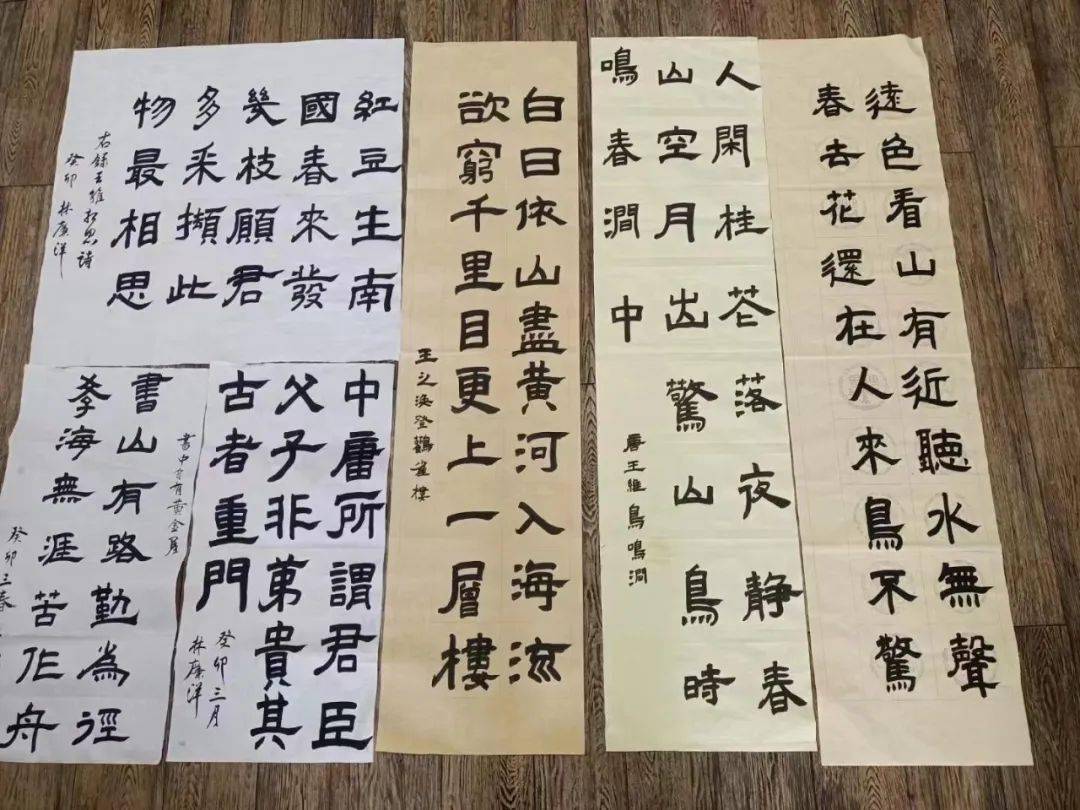 遠色看山有近聽水無聲
春去花還在人來鳥不驚
人閑桂花落夜静春
山空月出驚山鳥時
鳴春澗中
唐王維鳥鳴澗
白日依山盡黄河入海流
欲窮千里目更上一層樓
王之渙登鸛雀樓
紅豆生南
國春來發
幾枝願君
多采擷此
物最相思
右錄王維相思詩
癸卯 林廉洋
中庸所謂君臣
父子非第貴其
古者重門
癸卯三月
林廉洋
書中自有黄金屋
書山有路勤為徑
學海無涯苦作舟
癸卯三春